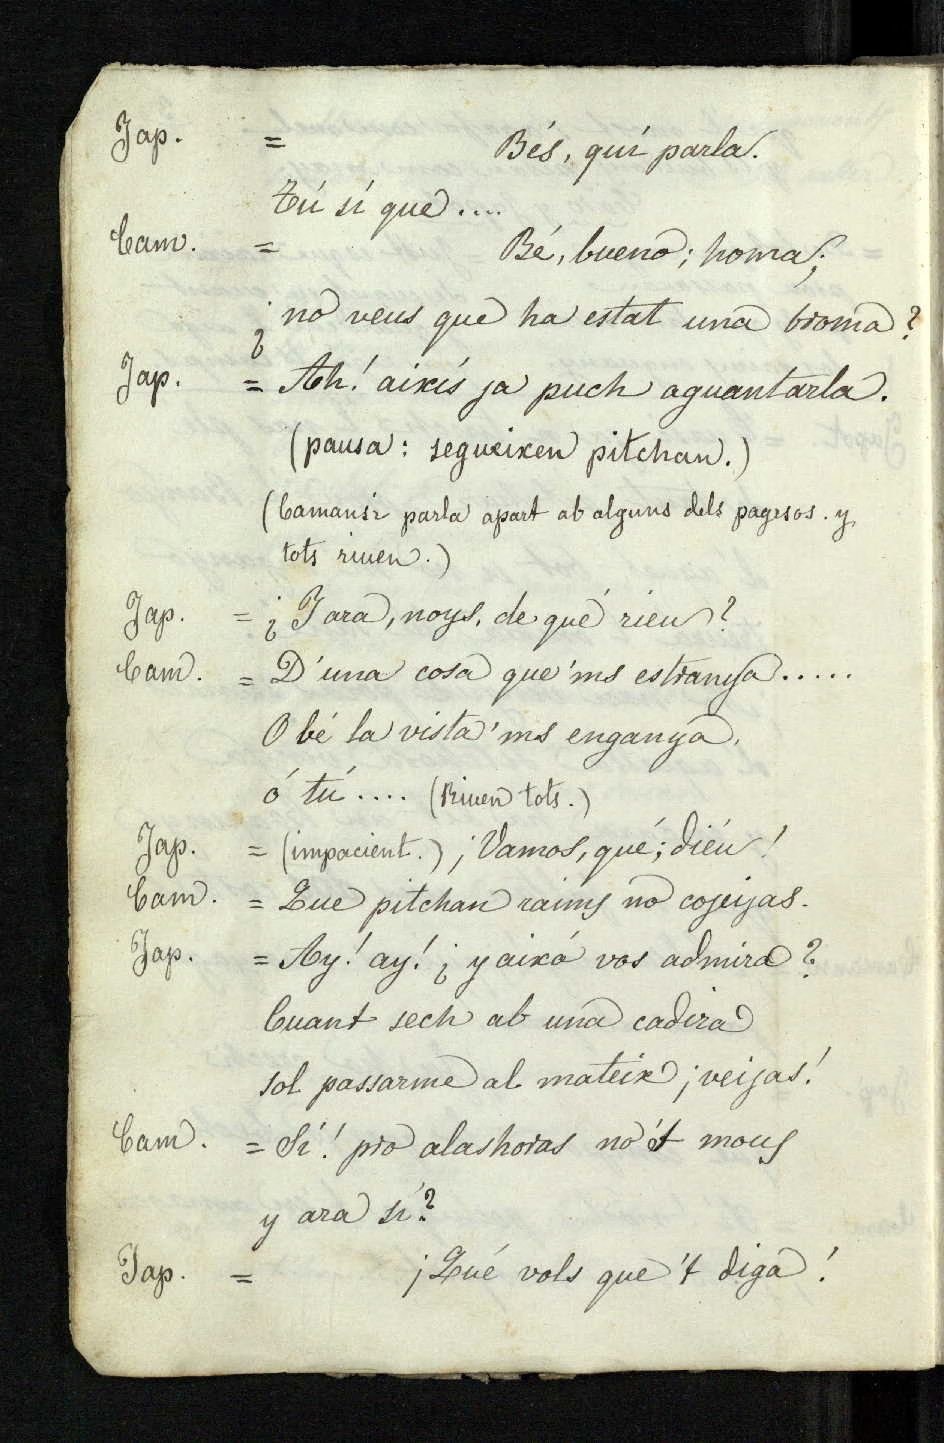 Jap. = Bés, quí parla.
tú sí que....
Cam. = Bé, bueno; homa;
¿no veus que ha estat una broma?
Jap. = Ah! aixís ja puch aguantarla.
(pausa: segueixen pitchan.)
(Camansir parla apart ab alguns dels pagesos. y
tots riuen.)
Jap. = ¿Y ara, noys, de qué rieu?
Cam. = D'una cosa que'ns estranya.....
O bé la vista'ns enganya,
ó tú.... (Riuen tots.)
Jap. = (impacient.) ¡Vamos, qué; diéu!
Cam. = Que pitchan raims no cojeijas.
Jap. = Ay! ay! ¿y aixó vos admira?
Cuant sech ab una cadira
sol passarme al mateix ¡veijas!
Cam. = Sí! pro alashoras no't mous
y ara sí?
Jap. = ¡Qué vols que't diga!